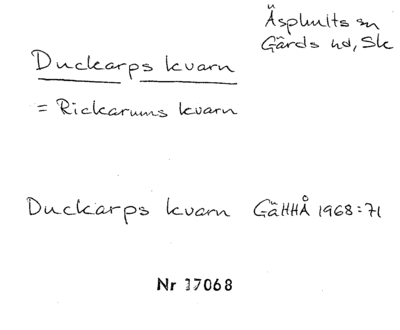 Äsphults sn
Gärds hd, Sk
Duckarps kvarn
= Rickarums kvarn
Duckarps kvarn GäHHÅ 1968:71
Nr 17068